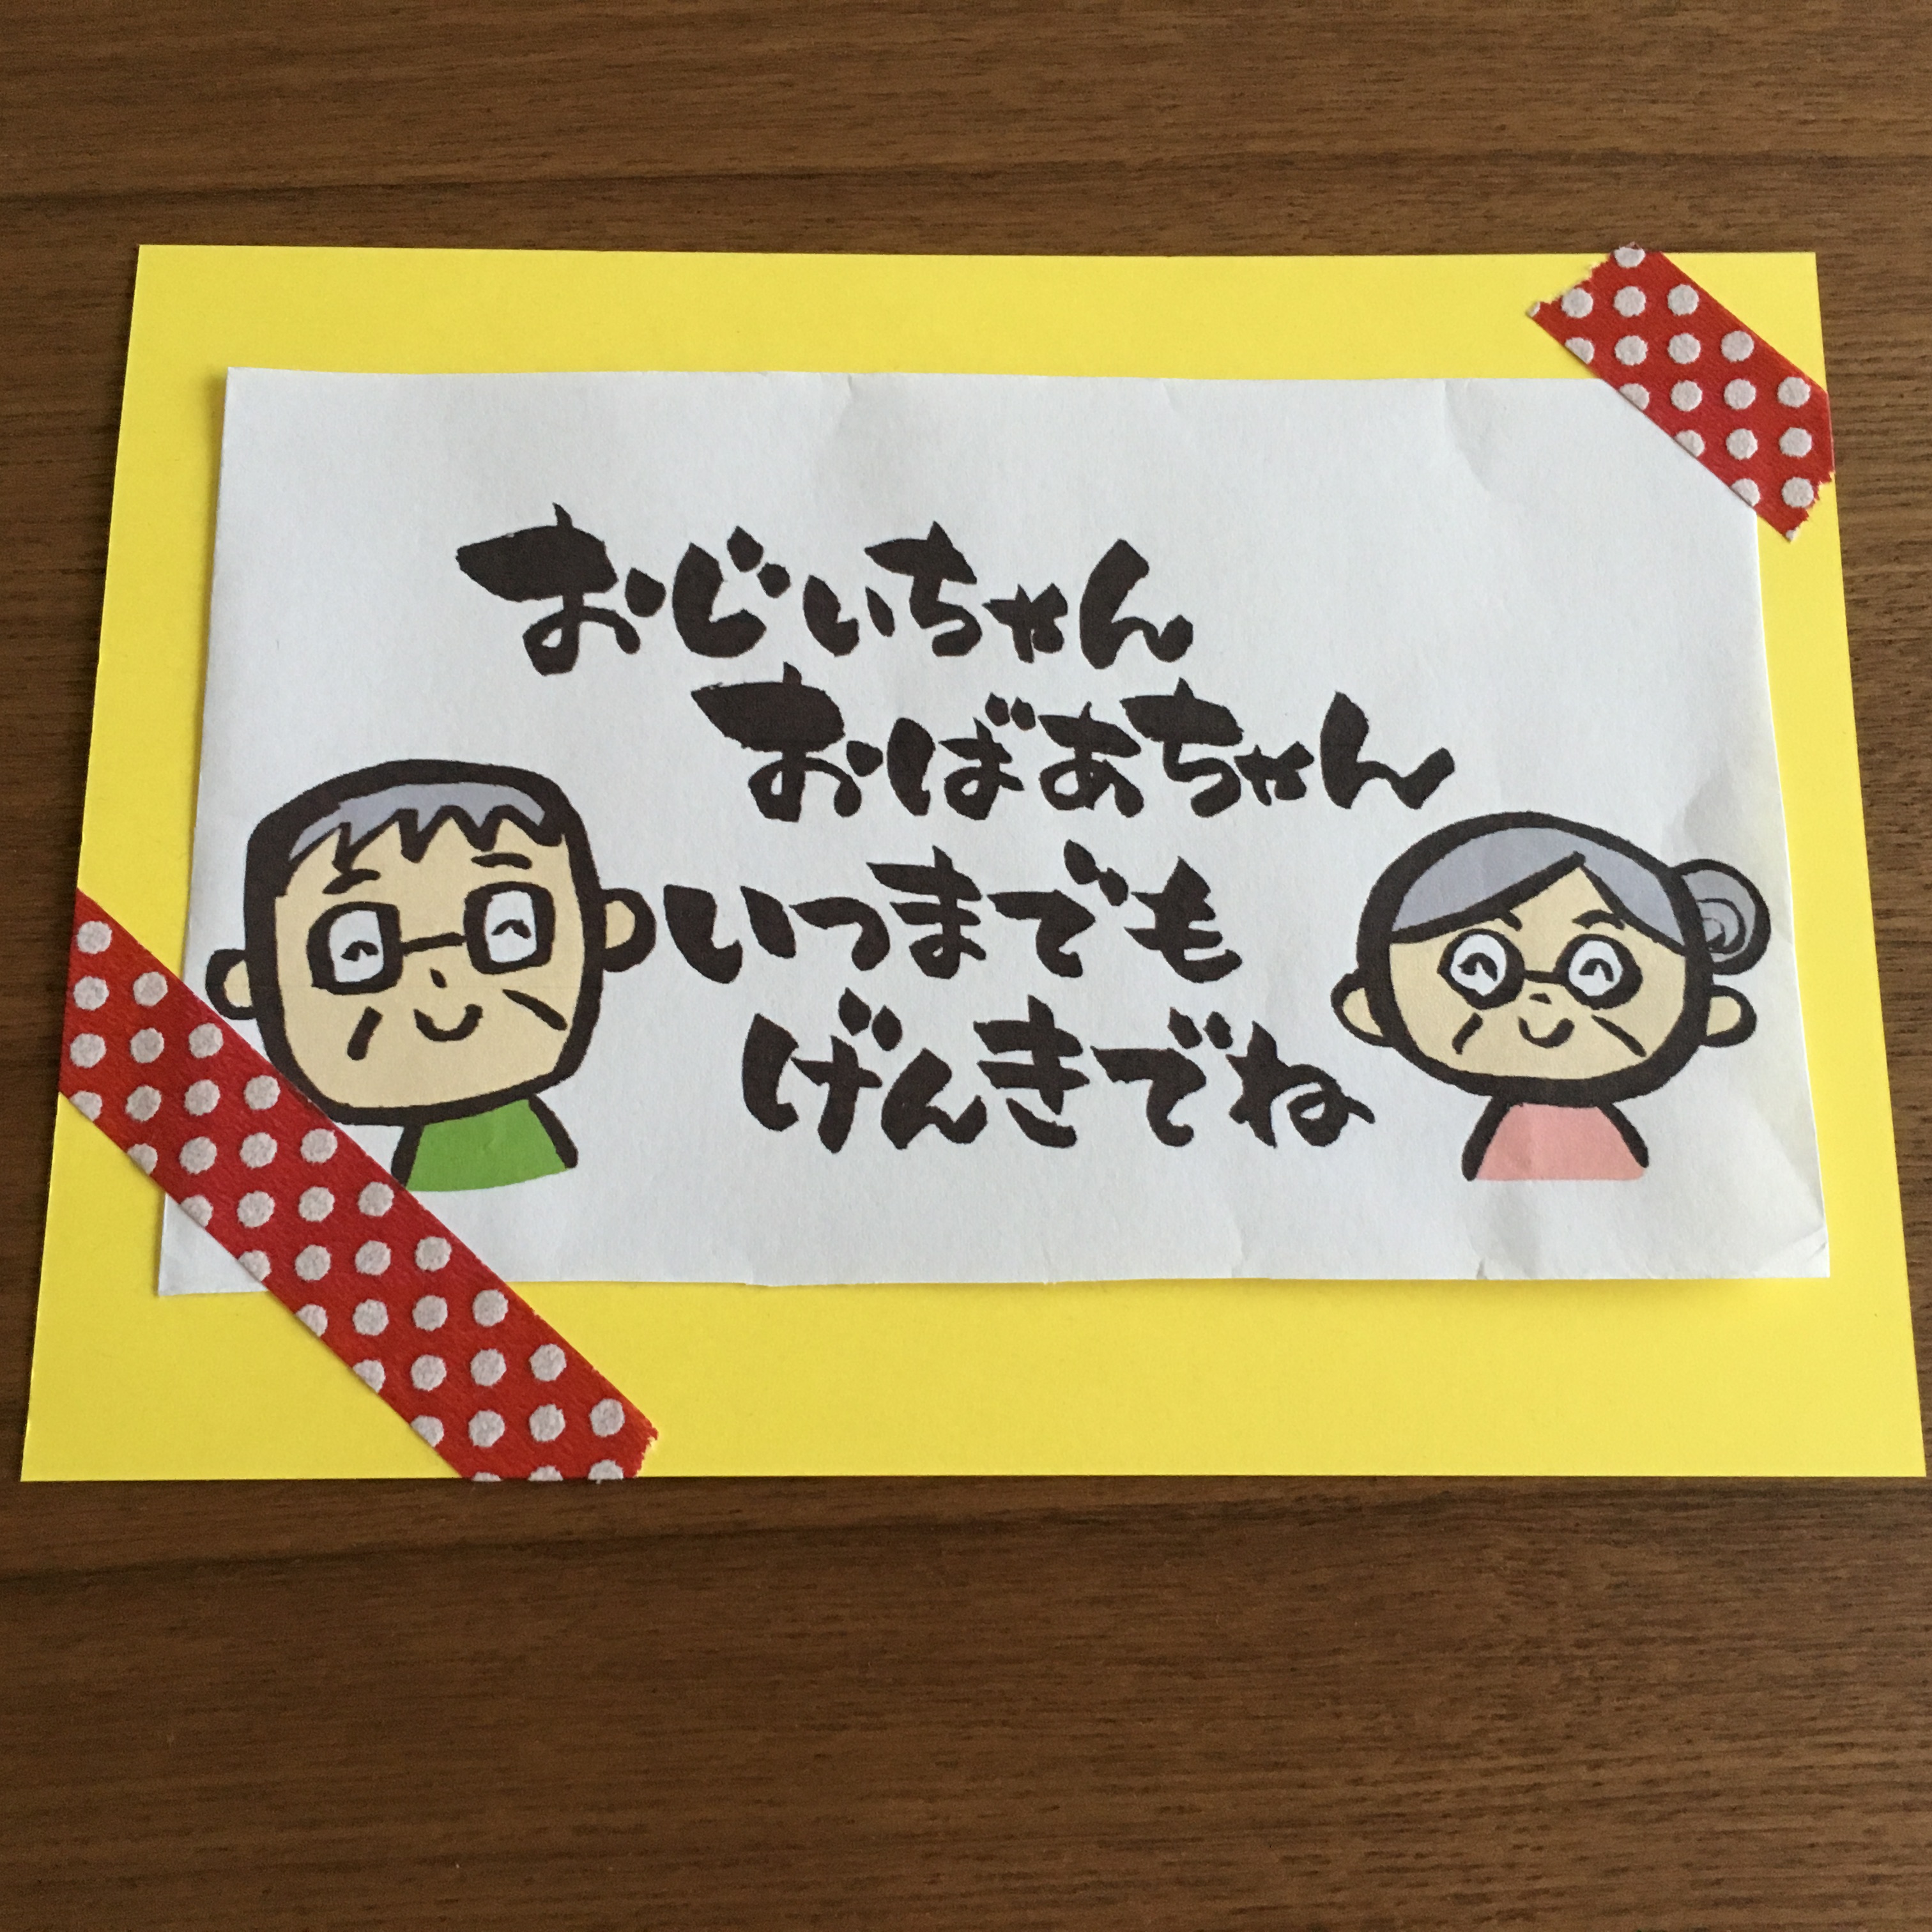 おじぃちゃん
おばあちゃん
いつまでも
げんきでね